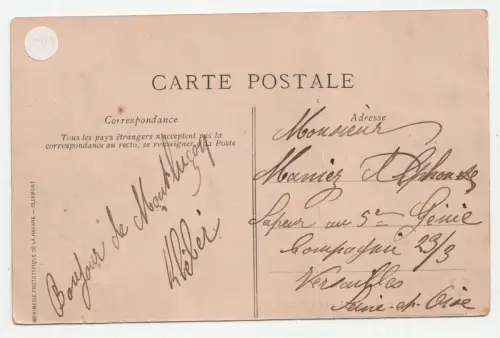 CARTE POSTALE
Correspondance
Tous les pays étrangers n'acceptent pas la
correspondance au recto, se renseigner à la Poste
Bonjour de Montluçon
Kléber
Adresse
Monsieur
Manier Alphonse
Sapeur au 5e Génie
Compagnie 23/3
Versailles
Seine-et-Oise
IMPRIMERIE PHOTOTYPIQUE DE LA - CLERMONT